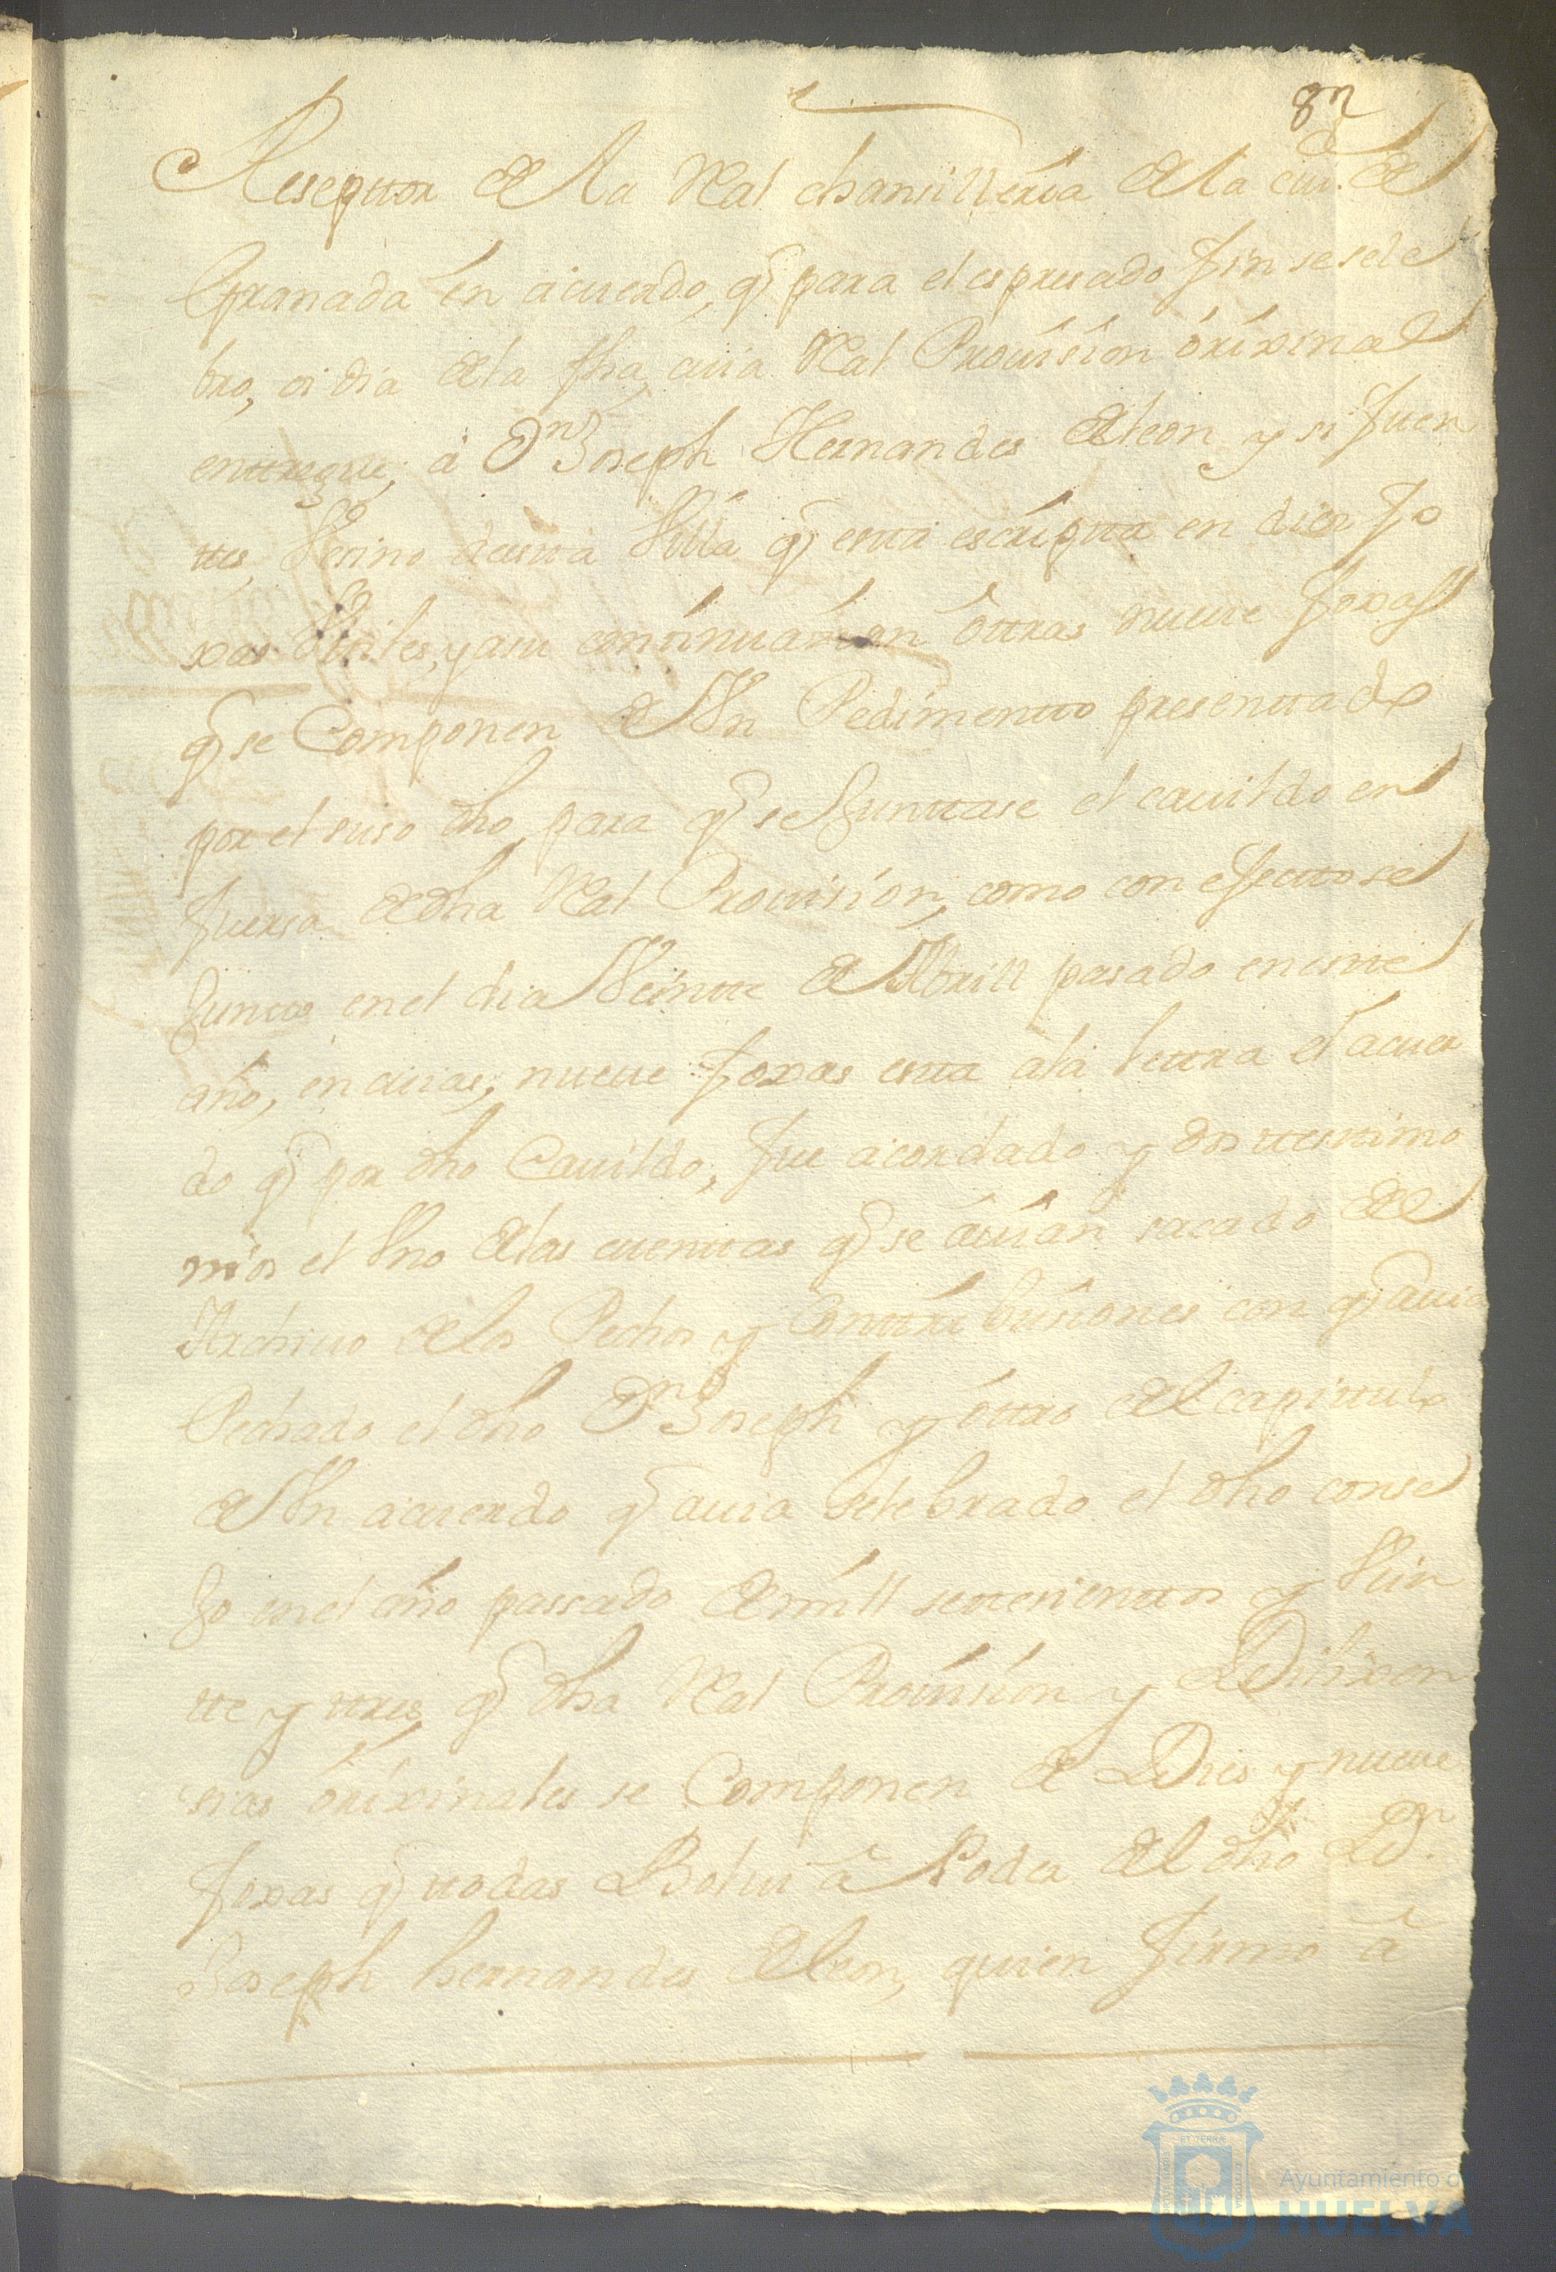 82
Reseptor de la Real chansilleria de la ciud. de
Granada en acuerdo, q para el espresado fin se sele
bro, oi dia de la fha, cuia Real Provision orixinal
enttregue, a Dn Joseph Hernandes de leon y si fuen
ttes Vecino de estta Villa q estta escriptta en diez fo
xas Vtiles, y a su continuazon ottras nueve foxas
q se Componen de Vn Pedimentto presenttado
por el suso dho para q se Junttase el cavildo en
fuersa de dha Real Provision, como con efectto se
Juntto en el dia Veintte de Abrill pasado en estte
año, en cuias, nueve foxas estta a la lettra el acuer
do q por dho Cavildo, fue acordado y dos ttesttimo
nios el Vno de las cuenttas q se avian sacado de
Archivo de los Pechos y Conttribusiones con q avia
Pechado el dho Dn Joseph y ottro del capittulo
de Vn acuerdo q avia selebrado el dho conse
Jo en el año passado de mill settesienttos y Vein
tte y ttres, q dha Real Provision y Dilixen
sias orixinales se Componen de Dies y nueve
foxas q ttodas Bolvi a Poder del dho Dn.
Joseph hernandes de leon, quien firmo a
Ayuntamiento de
HUELVA